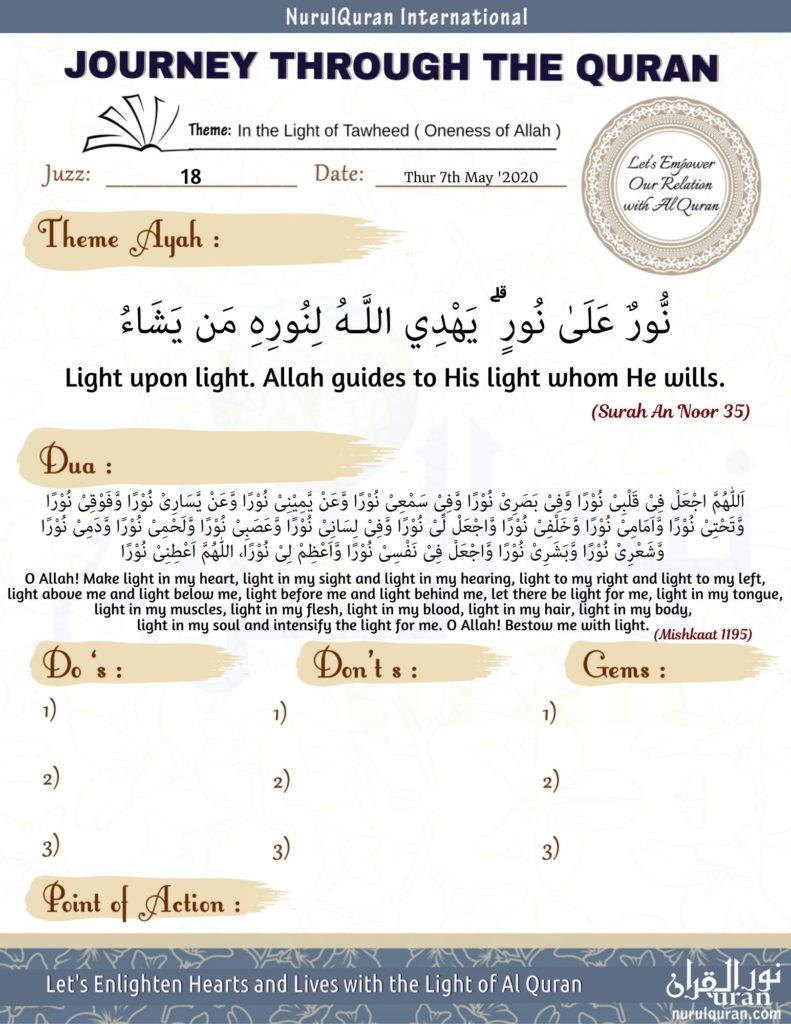 NurulQuran International
JOURNEY THROUGH THE QURAN
Theme: In the Light of Tawheed ( Oneness of Allah )
Juzz: 18 Date: Thur 7th May '2020
Let's Empower
Our Relation
with Al Quran
Theme Ayah :
نُّورٌ عَلَىٰ نُورٍ ۗ يَهْدِي اللَّـهُ لِنُورِهِ مَن يَشَاءُ
Light upon light. Allah guides to His light whom He wills.
(Surah An Noor 35)
Dua :
اَللّٰهُمَّ اجْعَلْ فِىْ قَلْبِىْ نُوْرًا وَّفِىْ بَصَرِىْ نُوْرًا وَّفِىْ سَمْعِىْ نُوْرًا وَّعَنْ يَّمِيْنِىْ نُوْرًا وَّعَنْ يَّسَارِىْ نُوْرًا وَّفَوْقِىْ نُوْرًا
وَّتَحْتِىْ نُوْرًا وَّاَمَامِىْ نُوْرًا وَّخَلْفِىْ نُوْرًا وَّاجْعَلْ لِّىْ نُوْرًا وَّفِىْ لِسَانِىْ نُوْرًا وَّعَصَبِىْ نُوْرًا وَّلَحْمِىْ نُوْرًا وَّدَمِىْ نُوْرًا
وَّشَعْرِىْ نُوْرًا وَّبَشَرِىْ نُوْرًا وَّاجْعَلْ فِىْ نَفْسِىْ نُوْرًا وَّاَعْظِمْ لِىْ نُوْرًا، اللّٰهُمَّ اَعْطِنِىْ نُوْرًا
O Allah! Make light in my heart, light in my sight and light in my hearing, light to my right and light to my left,
light above me and light below me, light before me and light behind me, let there be light for me, light in my tongue,
light in my muscles, light in my flesh, light in my blood, light in my hair, light in my body,
light in my soul and intensify the light for me. O Allah! Bestow me with light. (Mishkaat 1195)
Do 's : Don't s : Gems :
1) 1) 1)
2) 2) 2)
3) 3) 3)
Point of Action :
Let's Enlighten Hearts and Lives with the Light of Al Quran
نور القرآن
uran
nurulquran.com